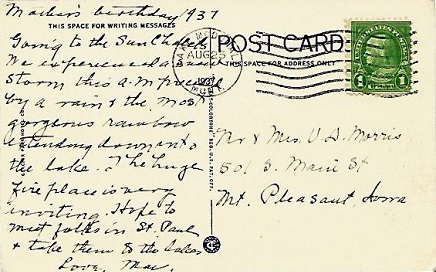 Mother's birthday 1937
THIS SPACE FOR WRITING MESSAGES
Going to the Sun Chalets
We experienced a wind
storm this a.m. preceded
by a rain & the most
gorgeous rainbow
extending down onto
the lake. The huge
fire place is very
inviting. Hope to
meet folks in St. Paul
& take them to the lakes
Love, Mac.
POST CARD
THIS SPACE FOR ADDRESS ONLY
AUG 25
1937
MONT.
1 1
Mr & Mrs V. S. Morris
501 S. Main St
Mt. Pleasant Iowa